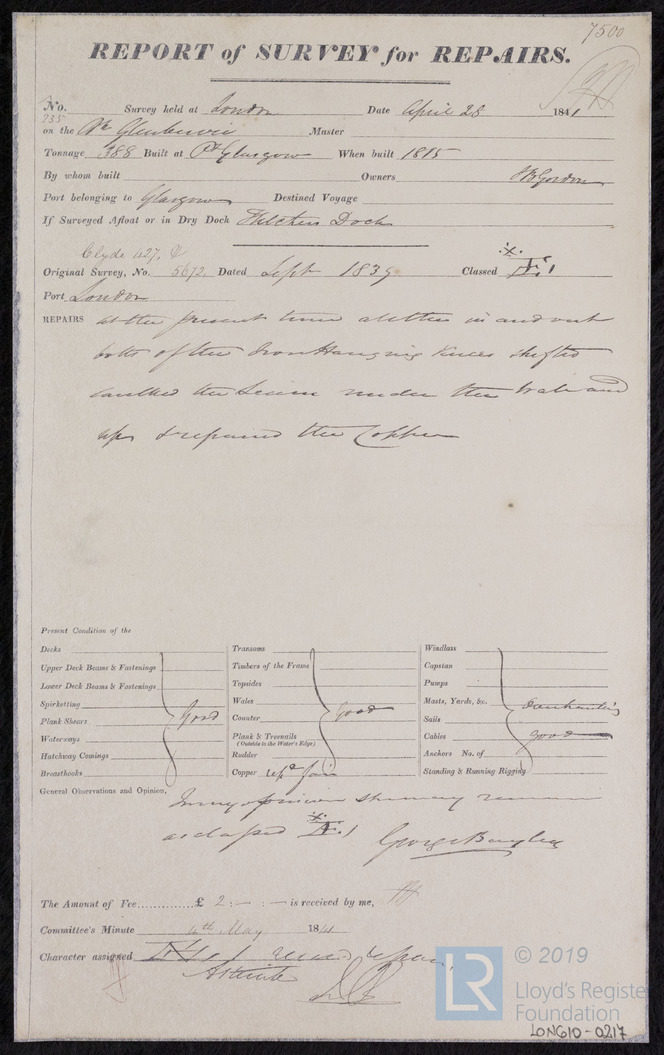 7500
REPORT of SURVEY for REPAIRS.
No. 235 Survey held at London Date April 28 1841
on the Glenbervie Master
Tonnage 388 Built at Pt Glasgow When built 1815
By whom built Owners Gordon
Port belonging to Glasgow Destined Voyage
If Surveyed Afloat or in Dry Dock Fletchers Dock
Clyde 427
Original Survey, No. 5672 Dated Sept 1839 Classed Æ 1
Port London
REPAIRS at the present time all the in and out
bolts of the Iron Hanging Knees shifted
caulked the Seams under the Wales and
up & repaired the Copper
Present Condition of the
Decks
Upper Deck Beams & Fastenings
Lower Deck Beams & Fastenings
Spirketting
Plank Shears
Waterways
Hatchway Comings
Breasthooks
Good
Transoms
Timbers of the Frame
Topsides
Wales
Counter
Plank & Treenails
(Outside to the Water's Edge)
Rudder
Good
Copper repd fair
Windlass
Capstan
Pumps
Masts, Yards, &c.
Sails
Cables
Anchors No. of
Standing & Running Rigging
good
General Observations and Opinion, In my opinion she may remain
as classed Æ 1 George Bayley
The Amount of Fee............£ 2 : - : - is received by me,
Committee's Minute 4th May 1841
Character assigned
© 2019
LR
Lloyd's Registe
Foundation
LON610-0217